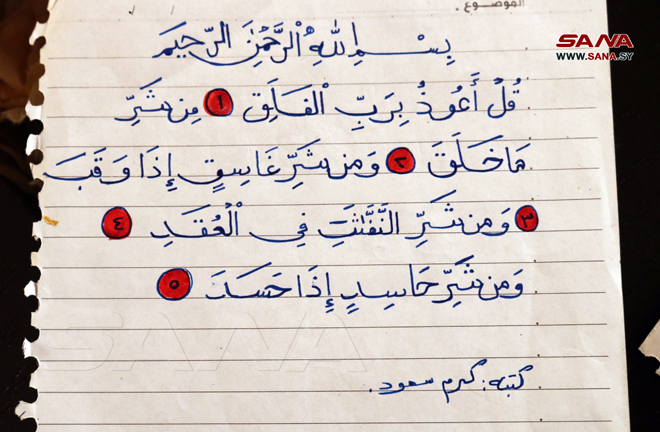 الموضوع:
SANA
WWW.SANA.SY
بِسْمِ اللهِ الرَّحْمَٰنِ الرَّحِيمِ
قُلْ أَعُوذُ بِرَبِّ الْفَلَقِ ١ مِن شَرِّ
مَا خَلَقَ ٢ وَمِن شَرِّ غَاسِقٍ إِذَا وَقَبَ
٣ وَمِن شَرِّ النَّفَّٰثَٰتِ فِي الْعُقَدِ ٤
وَمِن شَرِّ حَاسِدٍ إِذَا حَسَدَ ٥
SANA
كتبه: كرم سعود.